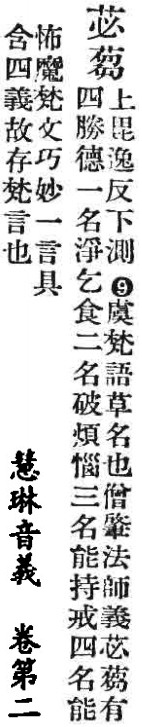 苾蒭
上毘逸反下測❾虞梵語草名也僧肇法師義苾蒭有
四勝德一名淨乞食二名破煩惱三名能持戒四名能
怖魔梵文巧妙一言具
含四義故存梵言也
慧琳音義　卷第二